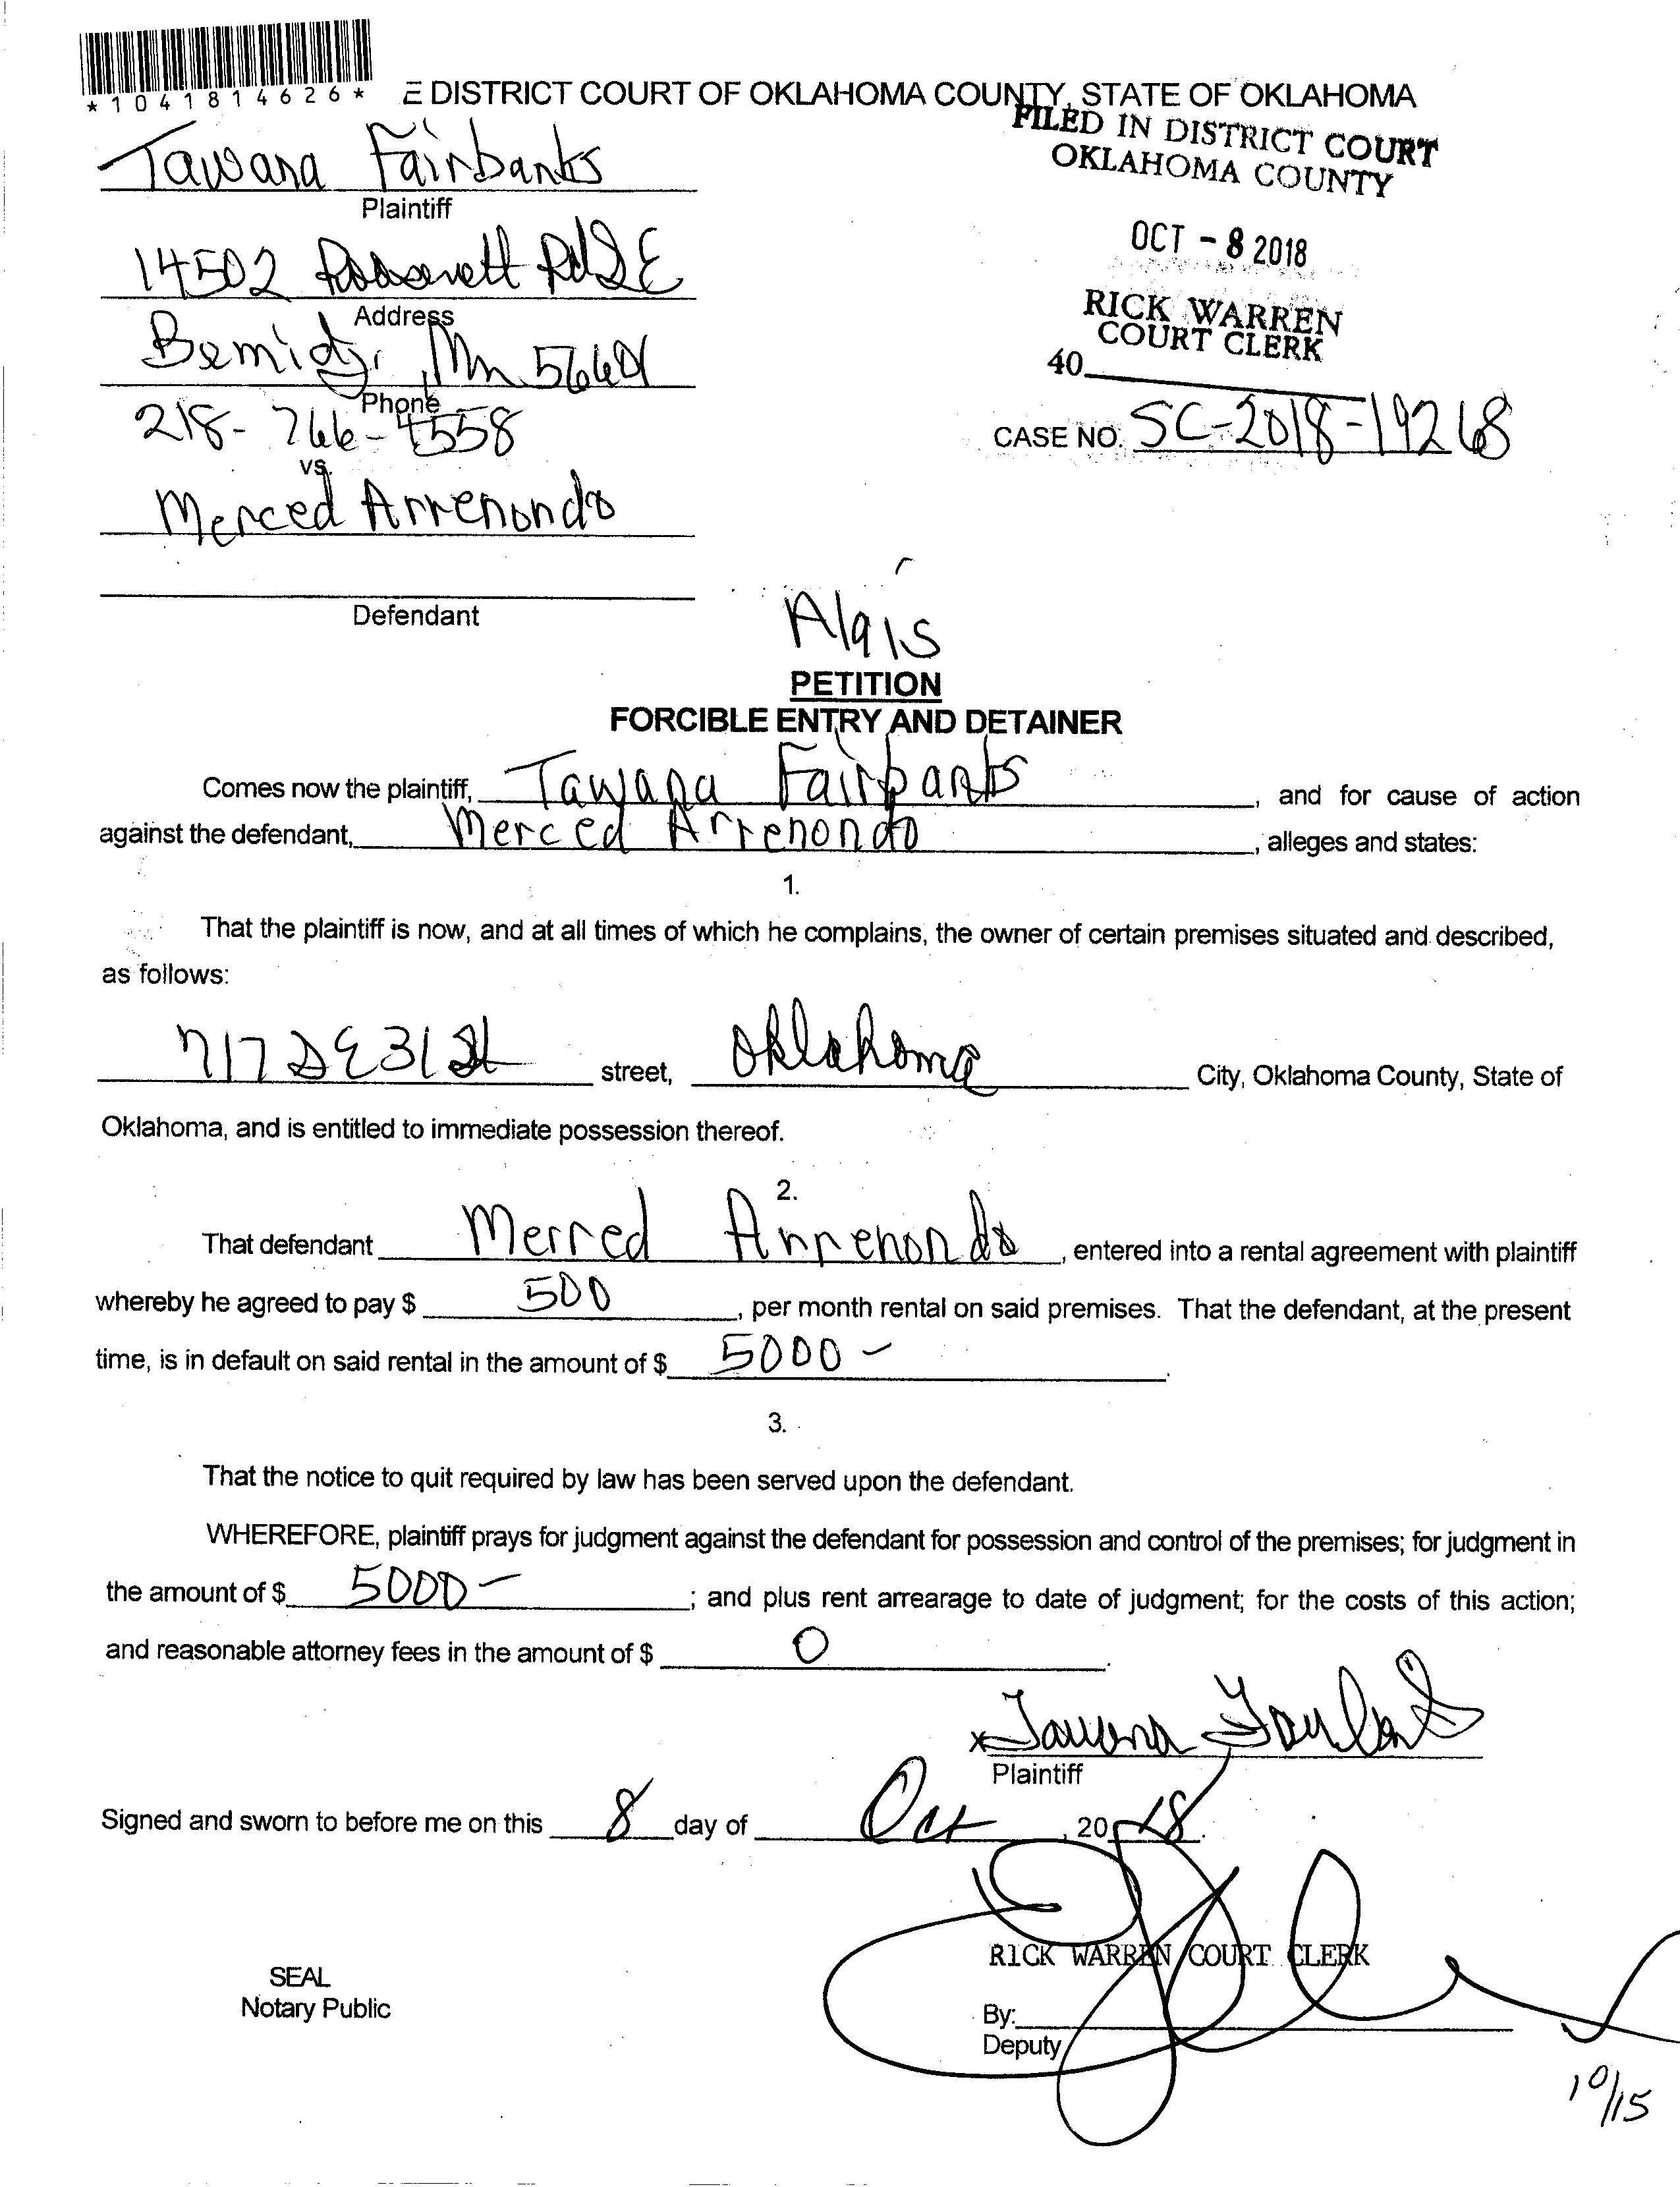 *1041814626*
E DISTRICT COURT OF OKLAHOMA COUNTY, STATE OF OKLAHOMA
FILED IN DISTRICT COURT
OKLAHOMA COUNTY
Tawana Fairbanks
Plaintiff
OCT - 8 2018
14502 Roosevelt Rd SE
Address
RICK WARREN
COURT CLERK
Bemidji, Mn 56601
40
Phone
218-766-4558
CASE NO. SC-2018-19268
vs.
Merced Arrenondo
Defendant
Alqis
PETITION
FORCIBLE ENTRY AND DETAINER
Comes now the plaintiff, Tawana Fairbanks, and for cause of action
against the defendant, Merced Arrenondo, alleges and states:
1.
That the plaintiff is now, and at all times of which he complains, the owner of certain premises situated and described,
as follows:
717 SE 31 St street, Oklahoma City, Oklahoma County, State of
Oklahoma, and is entitled to immediate possession thereof.
2.
That defendant Merced Arrenondo, entered into a rental agreement with plaintiff
whereby he agreed to pay $ 500, per month rental on said premises. That the defendant, at the present
time, is in default on said rental in the amount of $ 5000-.
3.
That the notice to quit required by law has been served upon the defendant.
WHEREFORE, plaintiff prays for judgment against the defendant for possession and control of the premises; for judgment in
the amount of $ 5000-; and plus rent arrearage to date of judgment; for the costs of this action;
and reasonable attorney fees in the amount of $ 0.
x Tawana Fairbanks
Plaintiff
Signed and sworn to before me on this 8 day of Oct, 2018.
RICK WARREN COURT CLERK
SEAL
Notary Public
By:
Deputy
10/15